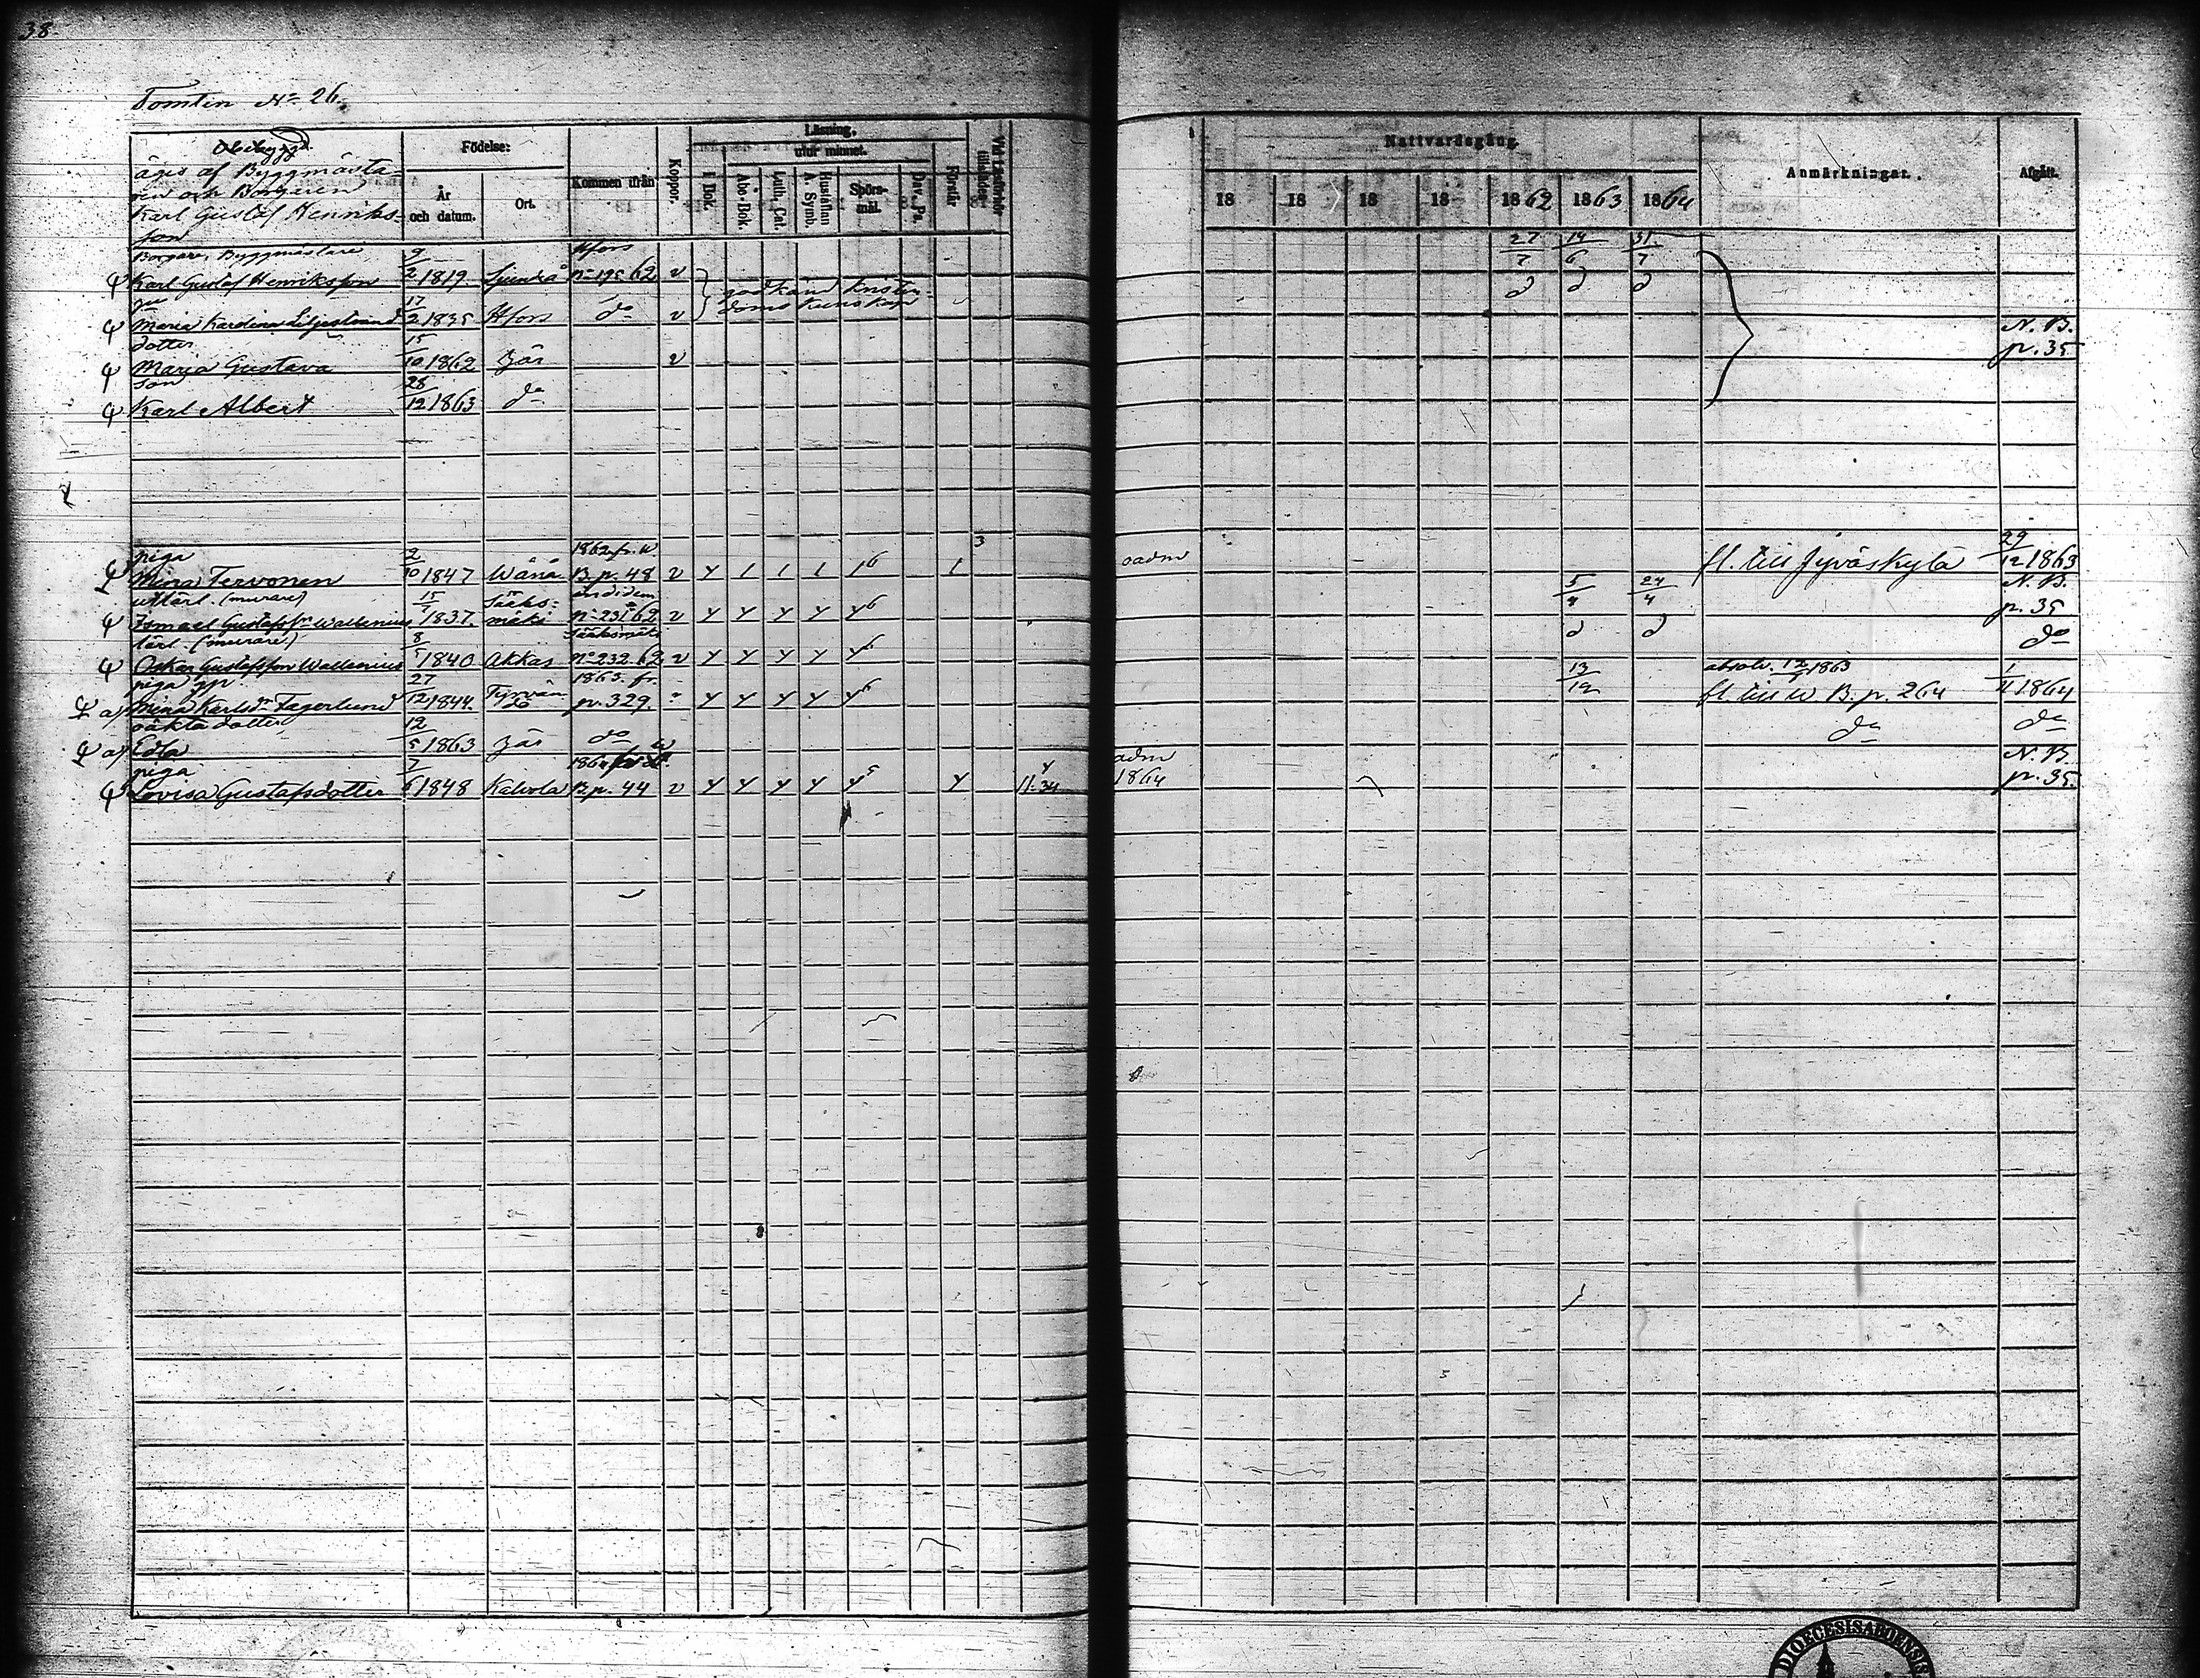 38.
Tomten No 26.
Obebyggd.
äges af Byggmästa-
ren och Borgaren
Karl Gustaf Henriks-
son
Födelse:
År
och datum.
Ort.
Kommen ifrån
Koppor.
Läsning,
utur minnet.
I Bok.
Abc-Bok.
Luth. Cat.
Hustaflan
A. Symb.
Spörs-
mål.
Dav. Ps.
Förstår
Vid Läseförhör
Nattvardsgång.
18 18 18 18 1862 1863 1864
Anmärkningar.
Afgått.
Borgare, Byggmästare 9 Hfors 27/7 14/6 31/7
Karl Gustaf Henriksson 2 1819 Sjundeå No 195. 62 v godkänd kristen-
17 doms kunskap
Maria Karolina Liljestrand 2 1835 Hfors do v N. B.
dotter 15 p. 35
Maria Gustava 10 1862 här v
son 28
Karl Albert 12 1863 do
piga 2 1862 fr. W. 3 29
Mina Tervonen 10 1847 Wånå B. p. 48 v oadm fl. till Jyväskylä 12 1863
utlärl. (murare) 15 Sääks- 5/4 24/4 N. B.
Ismael Gustafsson Wallenius 7 1837. mäki No 231 62 v p. 35
lärl. (murare.) 8 Sääksmäki do
Oskar Gustafsson Wallenius 5 1840 Akkas No 232. 62 v
piga 27 1863. fr. 13/12 absolv. 12 1863 1
Mina Karlsdr Fagerlund 12 1844. Tyrvän- p. 329. fl. till W. B. p. 264 11 1864
oäkta dotter 12 do do
Edla 5 1863 här do N. B.
piga 7 adm
Lovisa Gustafsdotter 6 1848 Kalvola B. p. 44 v 11.34 1864 p. 35.
DIOECESIS ABOENSIS